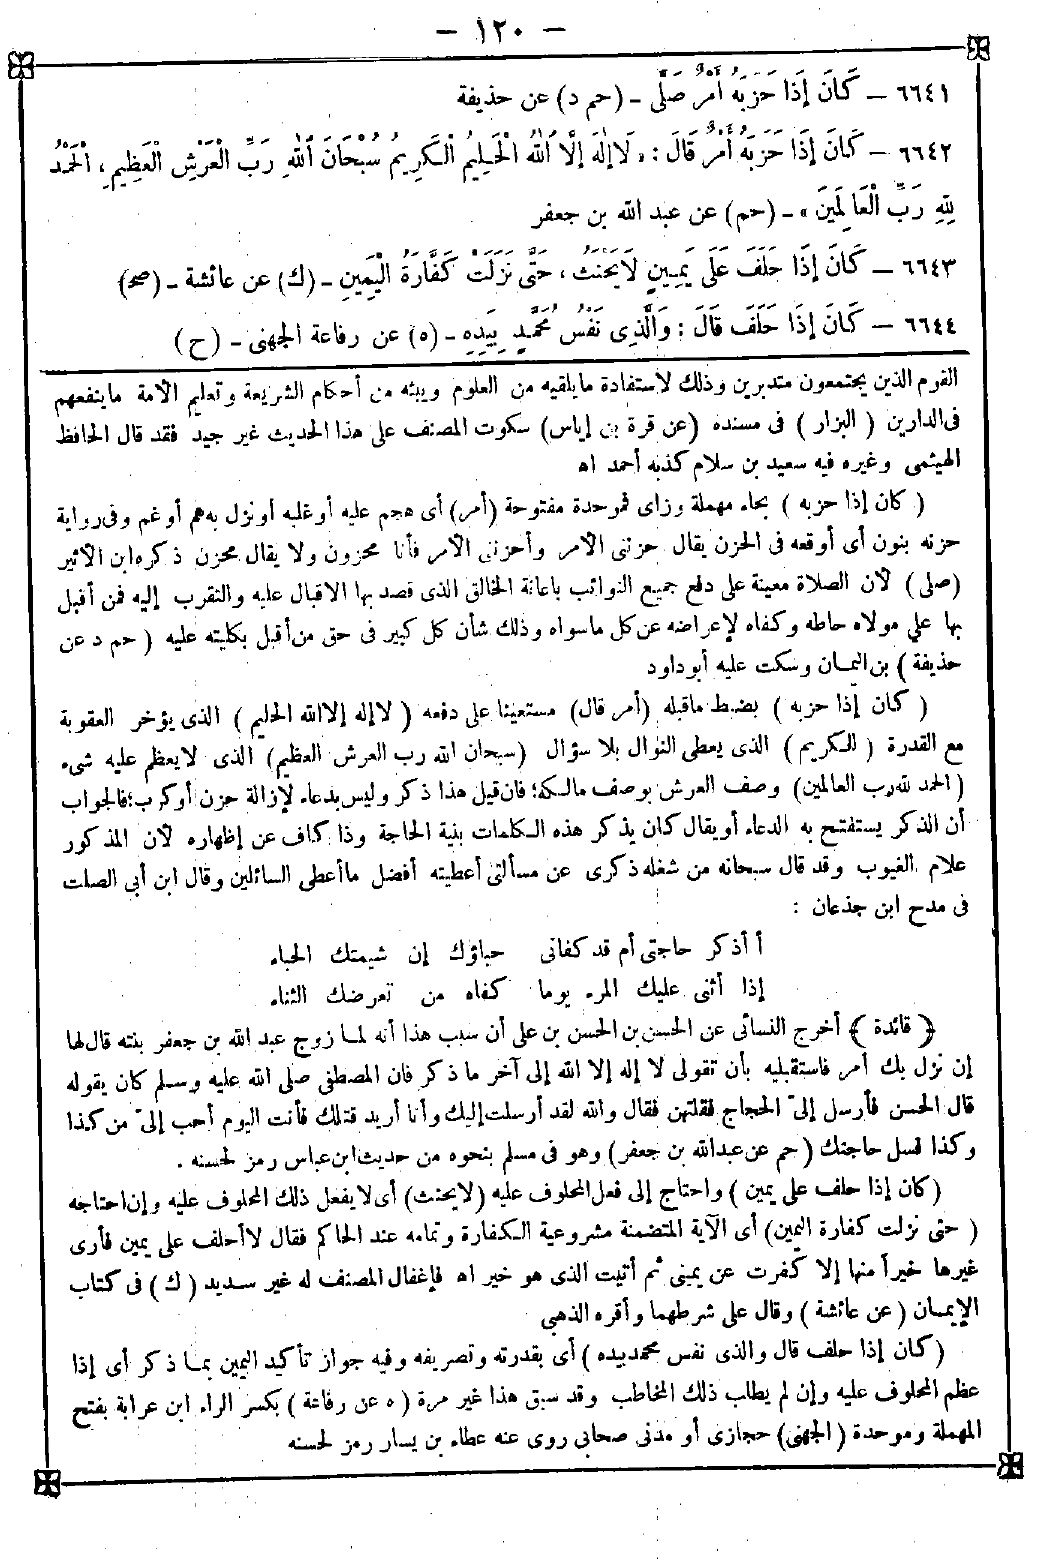 - ١٢٠ -
٦٦٤١ - كَانَ إِذَا حَزَبَهُ أَمْرٌ صَلَّى - (حم د) عن حذيفة
٦٦٤٢ - كَانَ إِذَا حَزَبَهُ أَمْرٌ قَالَ: «لَا إِلٰهَ إِلَّا اللّٰهُ الْحَلِيمُ الْكَرِيمُ سُبْحَانَ اللّٰهِ رَبِّ الْعَرْشِ الْعَظِيمِ، الْحَمْدُ
لِلّٰهِ رَبِّ الْعَالَمِينَ» - (حم) عن عبد الله بن جعفر
٦٦٤٣ - كَانَ إِذَا حَلَفَ عَلَى يَمِينٍ لَا يَحْنَثُ، حَتَّى نَزَلَتْ كَفَّارَةُ الْيَمِينِ - (ك) عن عائشة - (صح)
٦٦٤٤ - كَانَ إِذَا حَلَفَ قَالَ: وَالَّذِى نَفْسُ مُحَمَّدٍ بِيَدِهِ - (ه) عن رفاعة الجهنى - (ح)
القوم الذين يجتمعون متدبرين وذلك لاستفادة ما يلقيه من العلوم ويبثه من أحكام الشريعة وتعليم الأمة ما ينفعهم
فى الدارين (البزار) فى مسنده (عن قرة بن إياس) سكوت المصنف على هذا الحديث غير جيد فقد قال الحافظ
الهيثمى وغيره فيه سعيد بن سلام كذبه أحمد اه
(كان إذا حزبه) بحاء مهملة وزاى فموحدة مفتوحة (أمر) أى هجم عليه أو غلبه أو نزل به هم أو غم وفى رواية
حزنه بنون أى أوقعه فى الحزن يقال حزننى الأمر وأحزننى الأمر فأنا محزون ولا يقال محزن ذكره ابن الأثير
(صلى) لأن الصلاة معينة على دفع جميع النوائب باعانة الخالق الذى قصد بها الاقبال عليه والتقرب إليه فمن أقبل
بها على مولاه حاطه وكفاه لإعراضه عن كل ماسواه وذلك شأن كل كبير فى حق من أقبل بكليته عليه (حم د عن
حذيفة) بن اليمان وسكت عليه أبو داود
(كان إذا حزبه) بضبط ماقبله (أمر قال) مستعينا على دفعه (لا إله إلا الله الحليم) الذى يؤخر العقوبة
مع القدرة (الكريم) الذى يعطى النوال بلا سؤال (سبحان الله رب العرش العظيم) الذى لا يعظم عليه شىء
(الحمد لله رب العالمين) وصف العرش بوصف مالكه؛ فان قيل هذا ذكر وليس بدعاء لإزالة حزن أو كرب؛ فالجواب
أن الذكر يستفتح به الدعاء أو يقال كان يذكر هذه الكلمات بنية الحاجة وذا كاف عن إظهاره لأن المذكور
علام الغيوب وقد قال سبحانه من شغله ذكرى عن مسألتى أعطيته أفضل ما أعطى السائلين وقال ابن أبى الصلت
فى مدح ابن جذعان:
أ أذكر حاجتى أم قد كفانى حباؤك إن شيمتك الحباء
إذا أثنى عليك المرء يوما كفاه من تعرضك الثناء
﴿فائدة﴾ أخرج النسائى عن الحسن بن الحسن بن على أن سبب هذا أنه لما زوج عبد الله بن جعفر بنته قال لها
إن نزل بك أمر فاستقبليه بأن تقولى لا إله إلا الله إلى آخر ما ذكر فان المصطفى صلى الله عليه وسلم كان يقوله
قال الحسن فأرسل إلىّ الحجاج فقلتهن فقال والله لقد أرسلت إليك وأنا أريد قتلك فأنت اليوم أحب إلىّ من كذا
وكذا فسل حاجتك (حم عن عبدالله بن جعفر) وهو فى مسلم بنحوه من حديث ابن عباس رمز لحسنه.
(كان إذا حلف على يمين) واحتاج إلى فعل المحلوف عليه (لا يحنث) أى لا يفعل ذلك المحلوف عليه وإن احتاجه
(حتى نزلت كفارة اليمين) أى الآية المتضمنة مشروعية الكفارة وتمامه عند الحاكم فقال لا أحلف على يمين فأرى
غيرها خيراً منها إلا كفرت عن يمينى ثم أتيت الذى هو خير اه فإغفال المصنف له غير سديد (ك) فى كتاب
الإيمان (عن عائشة) وقال على شرطهما وأقره الذهبى
(كان إذا حلف قال والذى نفس محمد بيده) أى بقدرته وتصريفه وفيه جواز تأكيد اليمين بما ذكر أى إذا
عظم المحلوف عليه وإن لم يطلب ذلك المخاطب وقد سبق هذا غير مرة (ه عن رفاعة) بكسر الراء ابن عرابة بفتح
المهملة وموحدة (الجهنى) حجازى أو مدنى صحابى روى عنه عطاء بن يسار رمز لحسنه